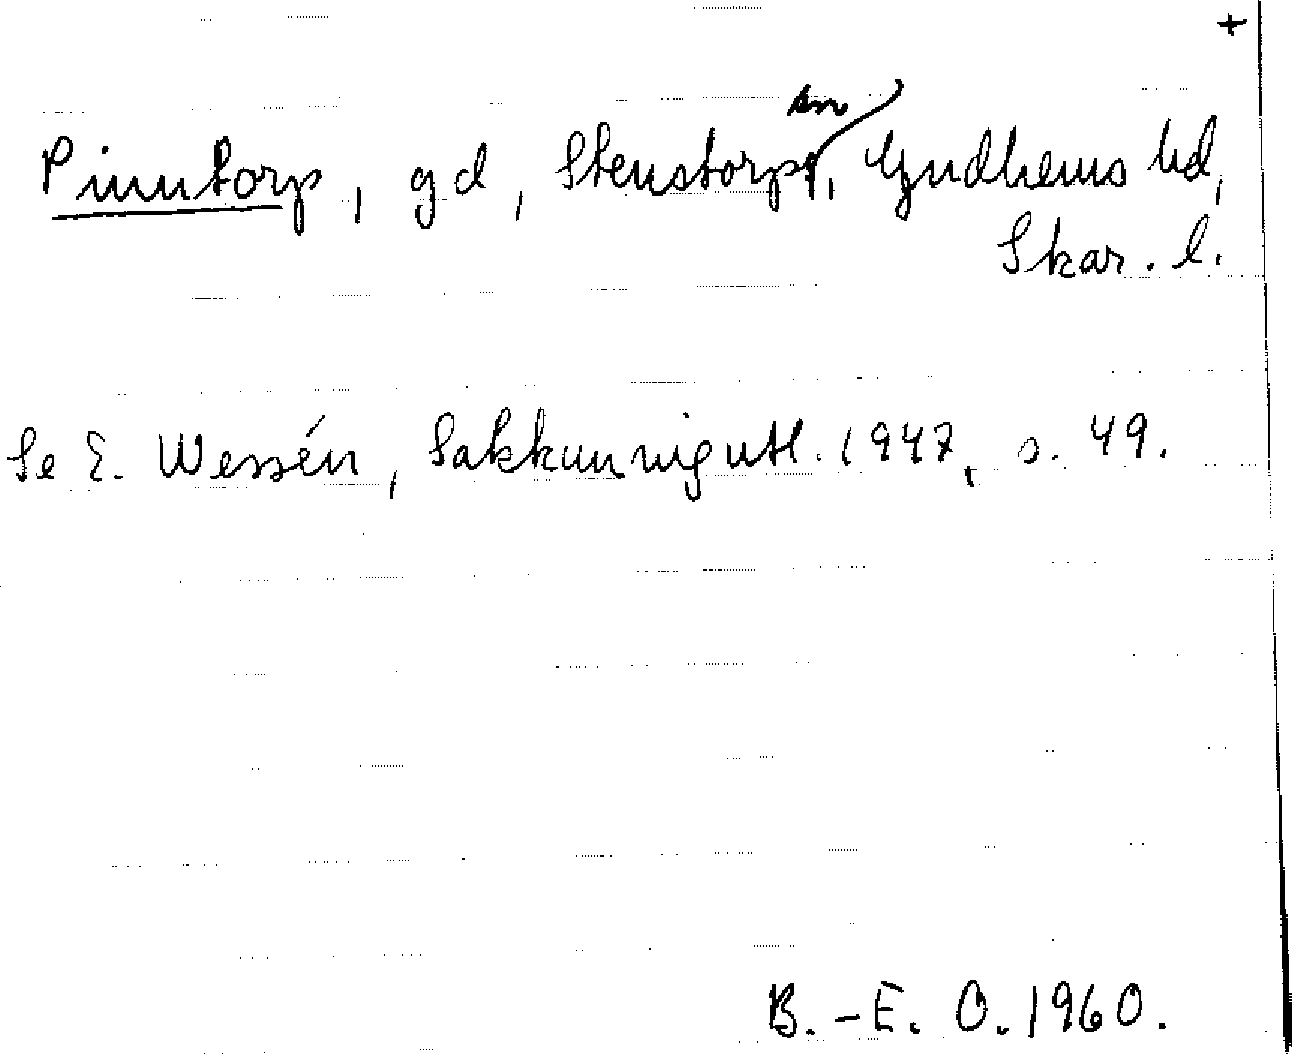 +
Pinntorp, gd, Stenstorps sn, Gudhems hd,
Skar. l.
Se E. Wessén, Sakkunnigutl. 1947, s. 49.
B.-E. O. 1960.